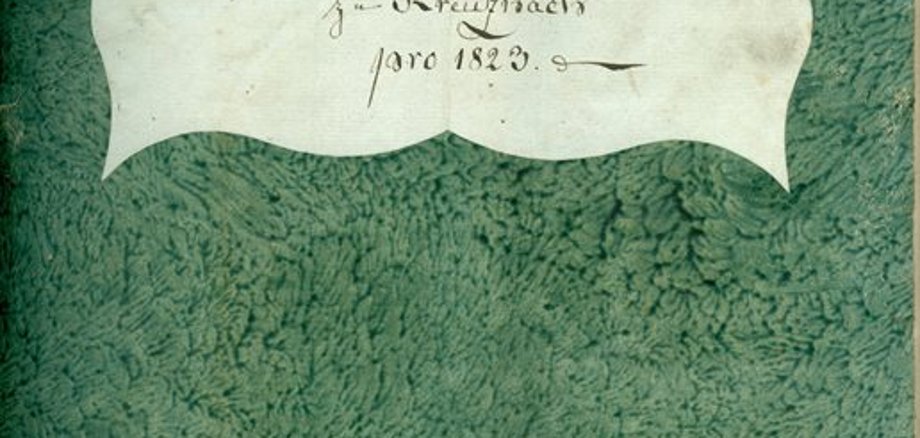 zu Kreuznach
pro 1823.